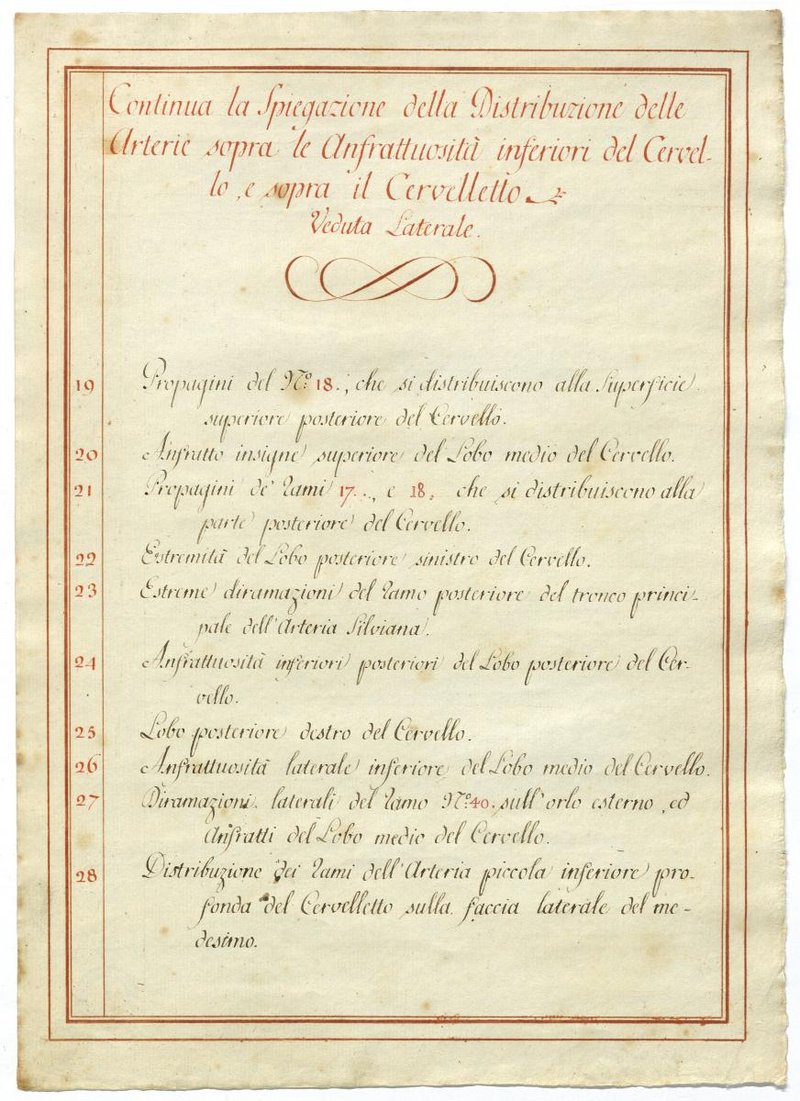 Continua la Spiegazione della Distribuzione delle
Arterie sopra le Anfrattuosità inferiori del Cervel-
lo, e sopra il Cervelletto.
Veduta Laterale.
19 Propagini del N.º 18., che si distribuiscono alla Superficie
superiore posteriore del Cervello.
20 Anfratto insigne superiore del Lobo medio del Cervello.
21 Propagini de' rami 17., e 18. che si distribuiscono alla
parte posteriore del Cervello.
22 Estremità del Lobo posteriore sinistro del Cervello.
23 Estreme diramazioni del ramo posteriore del tronco princi-
pale dell'Arteria Silviana.
24 Anfrattuosità inferiori posteriori del Lobo posteriore del Cer-
vello.
25 Lobo posteriore destro del Cervello.
26 Anfrattuosità laterale inferiore del Lobo medio del Cervello.
27 Diramazioni laterali del ramo N.º 40. sull'orlo esterno, ed
Anfratti del Lobo medio del Cervello.
28 Distribuzione dei rami dell'Arteria piccola inferiore pro-
fonda del Cervelletto sulla faccia laterale del me-
desimo.